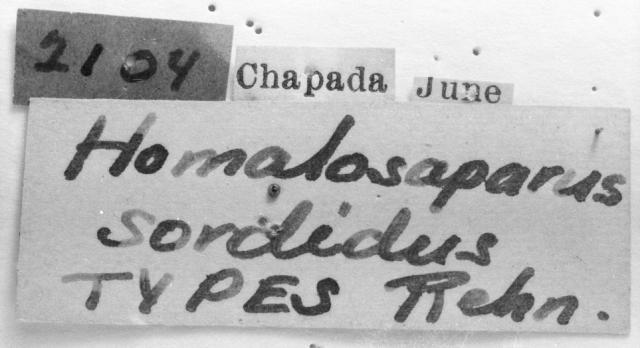 2104
Chapada
June
Homalosaparus
sordidus
TYPES Rehn.